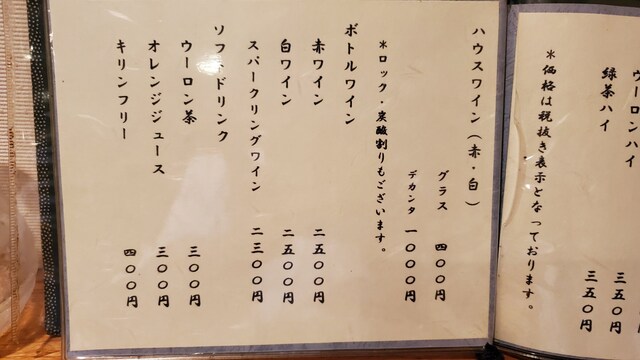 ウーロンハイ
緑茶ハイ 三五〇円
三五〇円
＊価格は税抜き表示となっております。
ハウスワイン（赤・白）
グラス 四〇〇円
デカンタ 一〇〇〇円
＊ロック・炭酸割りもございます。
ボトルワイン
赤ワイン 二五〇〇円
白ワイン 二五〇〇円
スパークリングワイン 二三〇〇円
ソフトドリンク
ウーロン茶 三〇〇円
オレンジジュース 三〇〇円
キリンフリー 四〇〇円